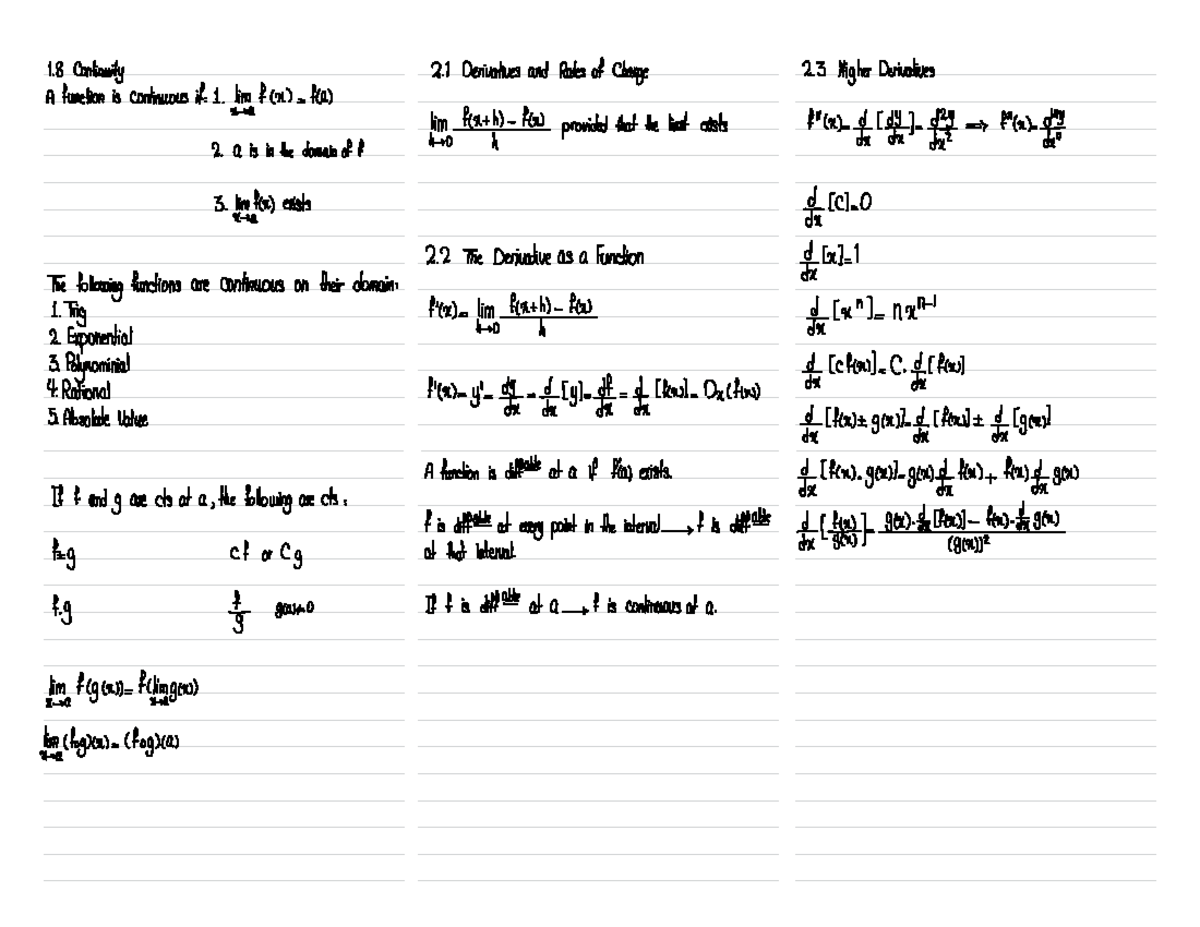 1.8 Continuity
A function is continuous if: 1. lim x→a f(x) = f(a)
2. a is in the domain of f
3. lim x→a f(x) exists
The following functions are continuous on their domain:
1. Trig
2. Exponential
3. Polynominial
4. Rational
5. Absolute Value
If f and g are cts at a, the following are cts:
f±g cf or cg
f.g f/g g(a)≠0
lim x→a f(g(x)) = f(lim x→a g(x))
lim x→a (fog)(x) = (fog)(a)
2.1 Derivatives and Rates of Change
lim h→0 f(x+h) - f(x) / h provided that the limit exists
2.2 The Derivative as a Function
f'(x) = lim h→0 f(x+h) - f(x) / h
f'(x) = y' = dy/dx = d/dx [y] = df/dx = d/dx [f(x)] = Dx(f(x))
A function is diffable at a if f'(a) exists.
f is diffable at every point in the interval → f is diffable
at that interval.
If f is diffable at a → f is continuous at a.
2.3 Higher Derivatives
f''(x) = d/dx [dy/dx] = d²y/dx² ⟹ fⁿ(x) = dⁿy/dxⁿ
d/dx [C] = 0
d/dx [x] = 1
d/dx [xⁿ] = n xⁿ⁻¹
d/dx [c f(x)] = C. d/dx [f(x)]
d/dx [f(x) ± g(x)] = d/dx [f(x)] ± d/dx [g(x)]
d/dx [f(x). g(x)] = g(x) d/dx f(x) + f(x) d/dx g(x)
d/dx [f(x)/g(x)] = g(x). d/dx [f(x)] - f(x). d/dx g(x) / (g(x))²